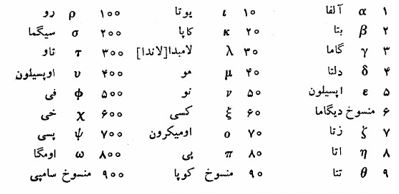 ۱ α آلفا ۱۰ ι یوتا ۱۰۰ ρ رو
۲ β بتا ۲۰ κ کاپا ۲۰۰ σ سیگما
۳ γ گاما ۳۰ λ لامبدا[لاندا] ۳۰۰ τ تاو
۴ δ دلتا ۴۰ μ مو ۴۰۰ υ اوپسیلون
۵ ε اپسیلون ۵۰ ν نو ۵۰۰ φ فی
۶ منسوخ دیگاما ۶۰ ξ کسی ۶۰۰ χ خی
۷ ζ زتا ۷۰ ο اومیکرون ۷۰۰ ψ پسی
۸ η اتا ۸۰ π پی ۸۰۰ ω اومگا
۹ θ تتا ۹۰ منسوخ کوپا ۹۰۰ منسوخ سامپی